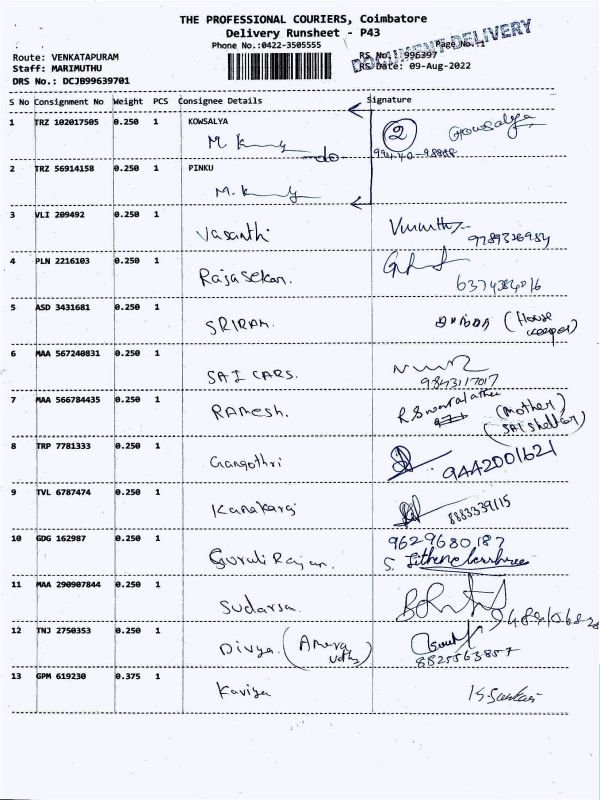 THE PROFESSIONAL COURIERS, Coimbatore
Delivery Runsheet - P43
Phone No.:0422-3505555
Page No.:1
DOCUMENT DELIVERY
Route: VENKATAPURAM
RS No: 996397
Staff: MARIMUTHU
DRS Date: 09-Aug-2022
DRS No.: DCJB99639701
S No Consignment No Weight PCS Consignee Details Signature
1 TRZ 102017505 0.250 1 KOWSALYA
2 Gowsalya
-do-
2 TRZ 56914158 0.250 1 PINKU
3 VLI 209492 0.250 1
Vasanthi
9789336984
4 PLN 2216103 0.250 1
Rajasekar.
6374384016
5 ASD 3431681 0.250 1
SRIRAM. (House keeper)
6 MAA 567240831 0.250 1
SAI CARS.
9843117017
7 MAA 566784435 0.250 1
RAMesh. (Mother)
(SAI Shelter)
8 TRP 7781333 0.250 1
Gangothri 9442001621
9 TVL 6787474 0.250 1
Kanakaraj 8883339115
10 GDG 162987 0.250 1
9629680187
11 MAA 290907844 0.250 1
Sudarsa.
12 TNJ 2750353 0.250 1
Divya.
8825563857
13 GPM 619230 0.375 1
Kaviya K.Sankar